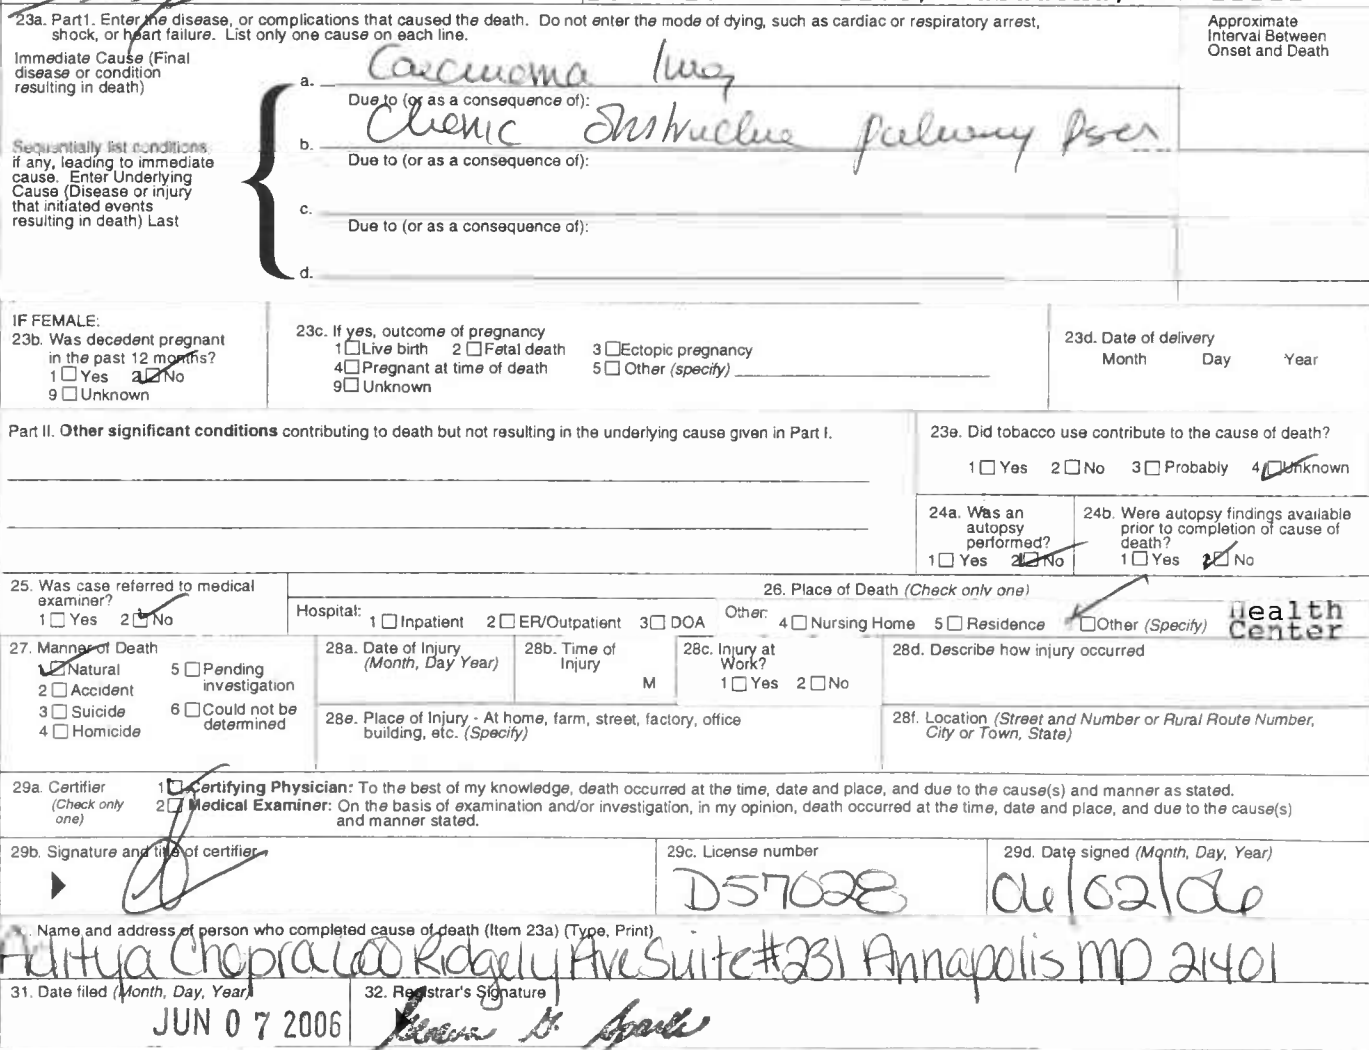 23a. Part1. Enter the disease, or complications that caused the death. Do not enter the mode of dying, such as cardiac or respiratory arrest,
shock, or heart failure. List only one cause on each line.
Approximate
Interval Between
Onset and Death
Immediate Cause (Final
disease or condition
resulting in death)
a. Carcinoma lung
Due to (or as a consequence of):
b. Chronic obstructive
Sequentially list conditions
if any, leading to immediate
cause. Enter Underlying
Cause (Disease or injury
that initiated events
resulting in death) Last
Due to (or as a consequence of):
c.
Due to (or as a consequence of):
d.
IF FEMALE:
23b. Was decedent pregnant
in the past 12 months?
1 Yes 2 No
9 Unknown
23c. If yes, outcome of pregnancy
1 Live birth 2 Fetal death 3 Ectopic pregnancy
4 Pregnant at time of death 5 Other (specify)
9 Unknown
23d. Date of delivery
Month Day Year
Part II. Other significant conditions contributing to death but not resulting in the underlying cause given in Part I.
23e. Did tobacco use contribute to the cause of death?
1 Yes 2 No 3 Probably 4 Unknown
24a. Was an
autopsy
performed?
1 Yes 2 No
24b. Were autopsy findings available
prior to completion of cause of
death?
1 Yes 2 No
25. Was case referred to medical
examiner?
1 Yes 2 No
26. Place of Death (Check only one)
Hospital: 1 Inpatient 2 ER/Outpatient 3 DOA Other: 4 Nursing Home 5 Residence Other (Specify) Health
Center
27. Manner of Death
1 Natural 5 Pending
investigation
2 Accident
3 Suicide 6 Could not be
determined
4 Homicide
28a. Date of Injury
(Month, Day Year)
28b. Time of
Injury
M
28c. Injury at
Work?
1 Yes 2 No
28d. Describe how injury occurred
28e. Place of Injury - At home, farm, street, factory, office
building, etc. (Specify)
28f. Location (Street and Number or Rural Route Number,
City or Town, State)
29a. Certifier
(Check only
one)
1 Certifying Physician: To the best of my knowledge, death occurred at the time, date and place, and due to the cause(s) and manner as stated.
2 Medical Examiner: On the basis of examination and/or investigation, in my opinion, death occurred at the time, date and place, and due to the cause(s)
and manner stated.
29b. Signature and title of certifier
29c. License number
D57028
29d. Date signed (Month, Day, Year)
06/02/06
Name and address of person who completed cause of death (Item 23a) (Type, Print)
Aditya Chopra 600 Ridgely Ave Suite #231 Annapolis MD 21401
31. Date filed (Month, Day, Year)
JUN 07 2006
32. Registrar's Signature